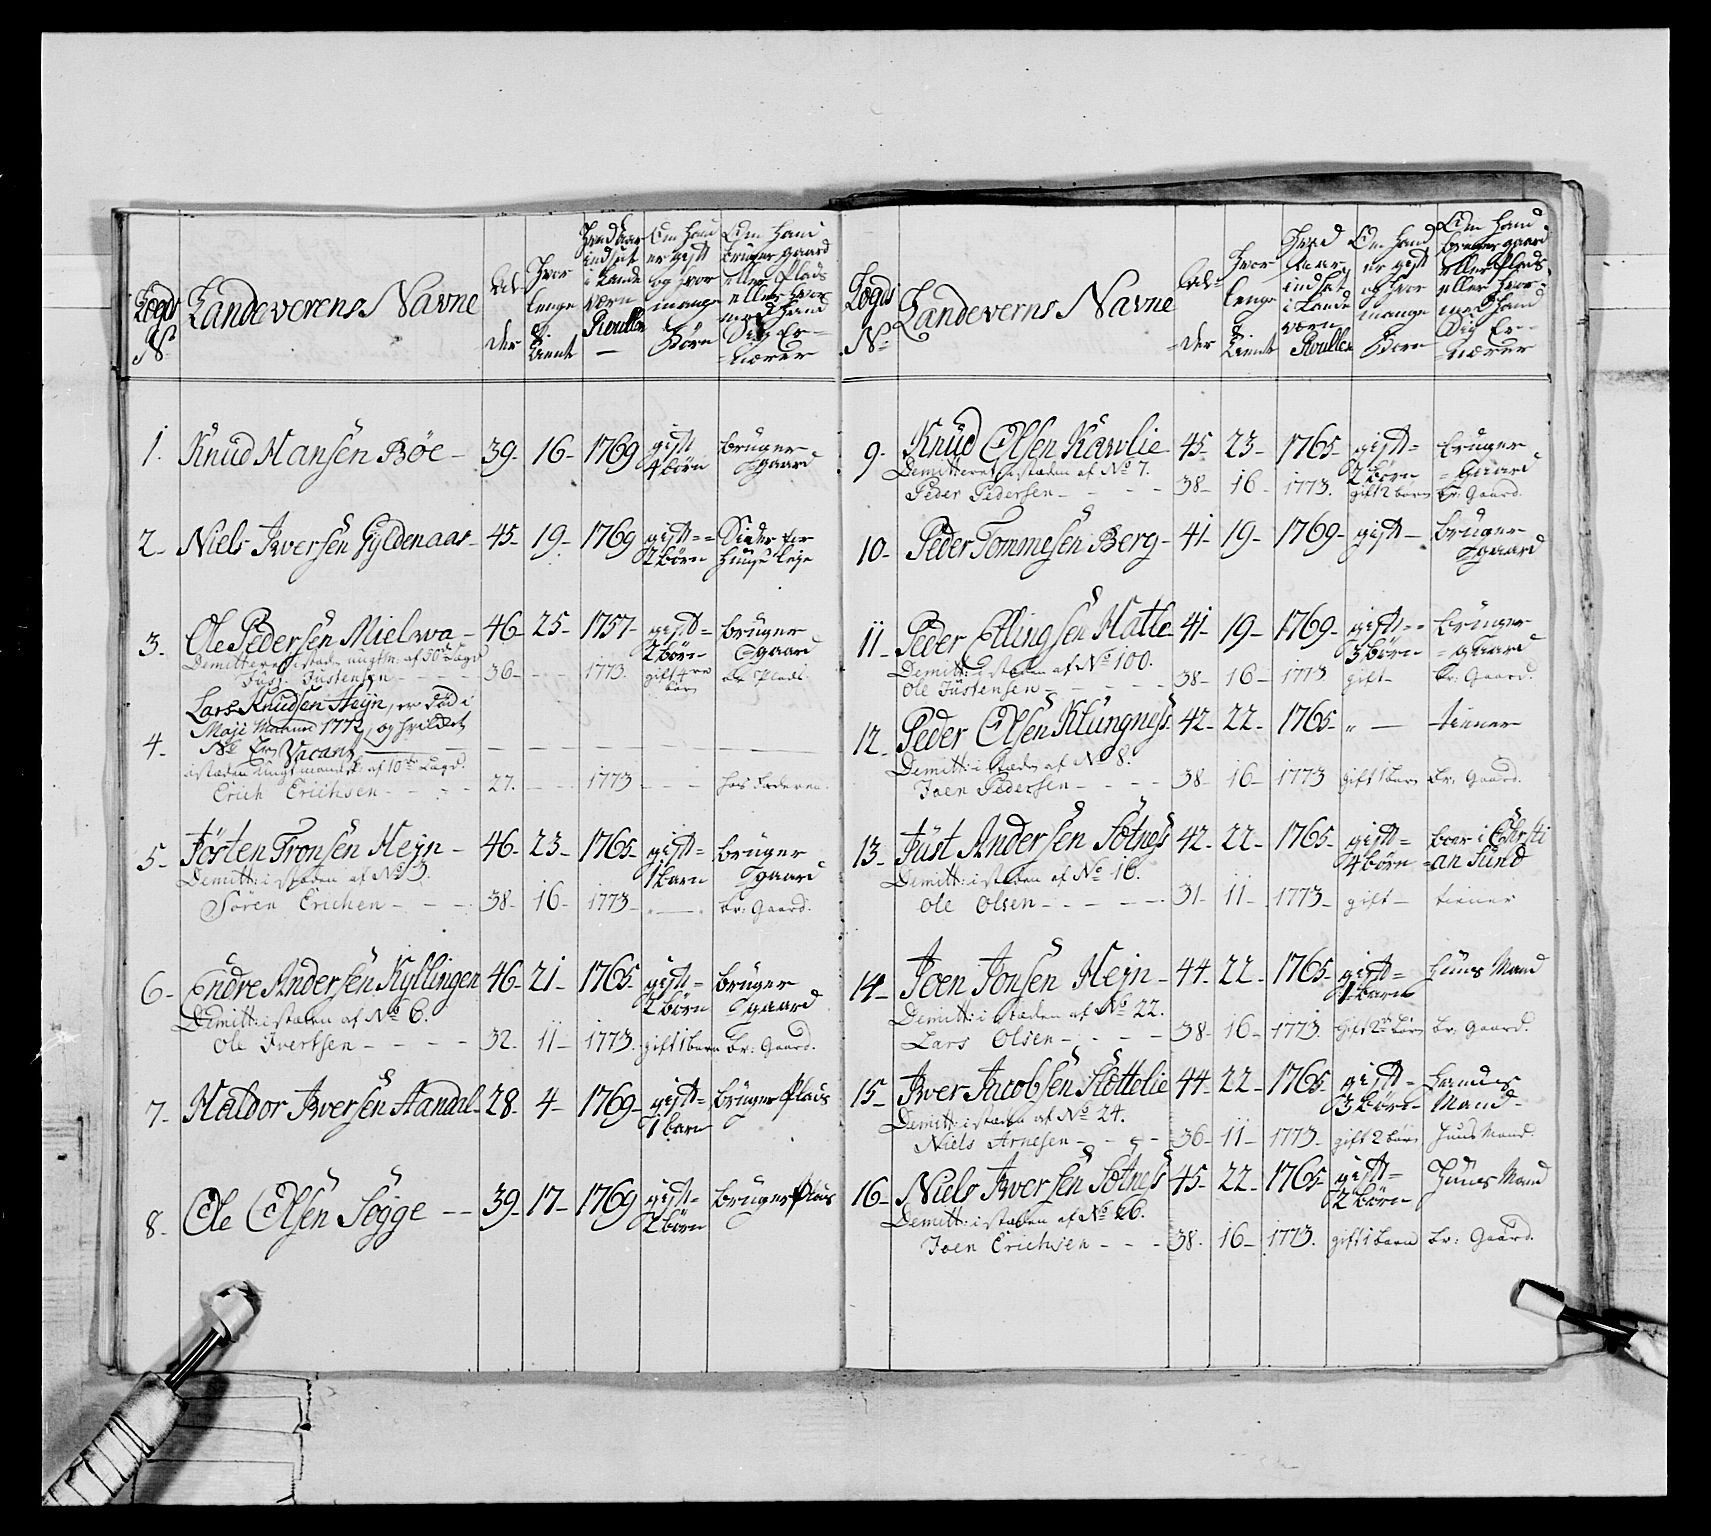 Lægds No Landeverens Navne Al- der Hvor lenge tient Hvad aar ind sat i Lande værn Roullen Om Hand er gift og hvor mange Börn Om Hand bruger gaard eller Plads eller hvor med Hand Sig Er- nærer
1. Knud Hansen Böe - 39- 16- 1769 gift 4 börn bruger gaard
2- Niels Iversen Gyldenaas- 45- 19- 1769 gift-- 2 börn Sider for Huuse leje
3- Ole Pedersen Mielwa - 46- 25- 1757- gift- 2 börn bruger gaard
Demitteret i staden af 50de Lægd
Just: Justensen - - - 36- - - 1773. gift 4re börn br: Plads.
4- Lars Knudsen Heyn, er död i
Maji Maaned 1772, og hvilket
No Er Vacant
i staden af 10de Lægd.
Erich Erichsen - - - - 27. - - 1773 - - - hos Faderen.
5- Jörten Tronsen Hejn - 46- 23- 1765- gift- 1 barn bruger gaard
Demitt: i staden af No 3.
Sören Erichen - - - 38- 16- 1773- br: Gaard.
6- Endre Andersen Kyllingen 46- 21- 1765- gift- 2 börn bruger gaard
Demitt: i staden af No 6.
Ole Ivertsen - - - - 32. 11- 1773. gift 1 barn br: Gaard.
7- Haldor Iversen Handal- 28- 4- 1769- gift- 1 barn brüger Plads
8. Ole Olsen Sögge - - 39- 17- 1769 gift- 2 börn bruger Plads
Lægds No Landeverns Navne Al- der Hvor lenge tient Hvad aar ind sat i Lande værn Roullen Om Hand er gift og hvor mange Börn Om Hand bruger gaard eller Plads eller hvor- med Hand Sig Er- nærer
9- Knud Olsen Kawlie 45- 23- 1765- gift- 2 börn bruger Gaard
Demitteret i staden af No 7.
Peder Pedersen - - - - 38- 16- 1773. gift 2 barn br: Gaard.
10- Peder Tommesen Berg- 41- 19- 1769- gift- bruger gaard
11- Peder Ellingsen Hatle 41- 19- 1769- gift-- 3 börn brüger gaard
Demitt: i staden af No 100.
Ole Justensen - - - - 38- 16- 1773 gift- br: Gaard.
12- Peder Olsen Klungness 42- 22- 1765- „ - tiener
Demitt: i staden af No 8.
Joen Pedersen - - - - 38- 16- 1773 gift 1 barn br: Gaard.
13- Just Andersen Sotness 42- 22- 1765- gift- 4 börn boer i Christi an Sund
Demitt: i staden af No 16.
Ole Olsen - - - - - 31- 11- 1773- gift- tiener
14- Joen Jonsen Hejn - 44- 22- 1765- gift- 1 barn Huus Mand
Demitt: i staden af No 22.
Lars Olsen - - - - 38- 16- 1773. gift 2de bör br: Gaard.
15- Iver Jacobsen Slottelie 44- 22- 1765 gift- 3 börn Mand-
Demitt: i staden af No 24.
Niels Arnesen - - - - 36- 11- 1773- gift 2 börn Huus Mand.
16- Niels Iversen Sotness 45- 22- 1765- gift- 2 börn Huus Mand
Demitt: i staden af No 26.
Joen Erichsen - - - 38. 16- 1773. gift 1 barn br: Gaard.